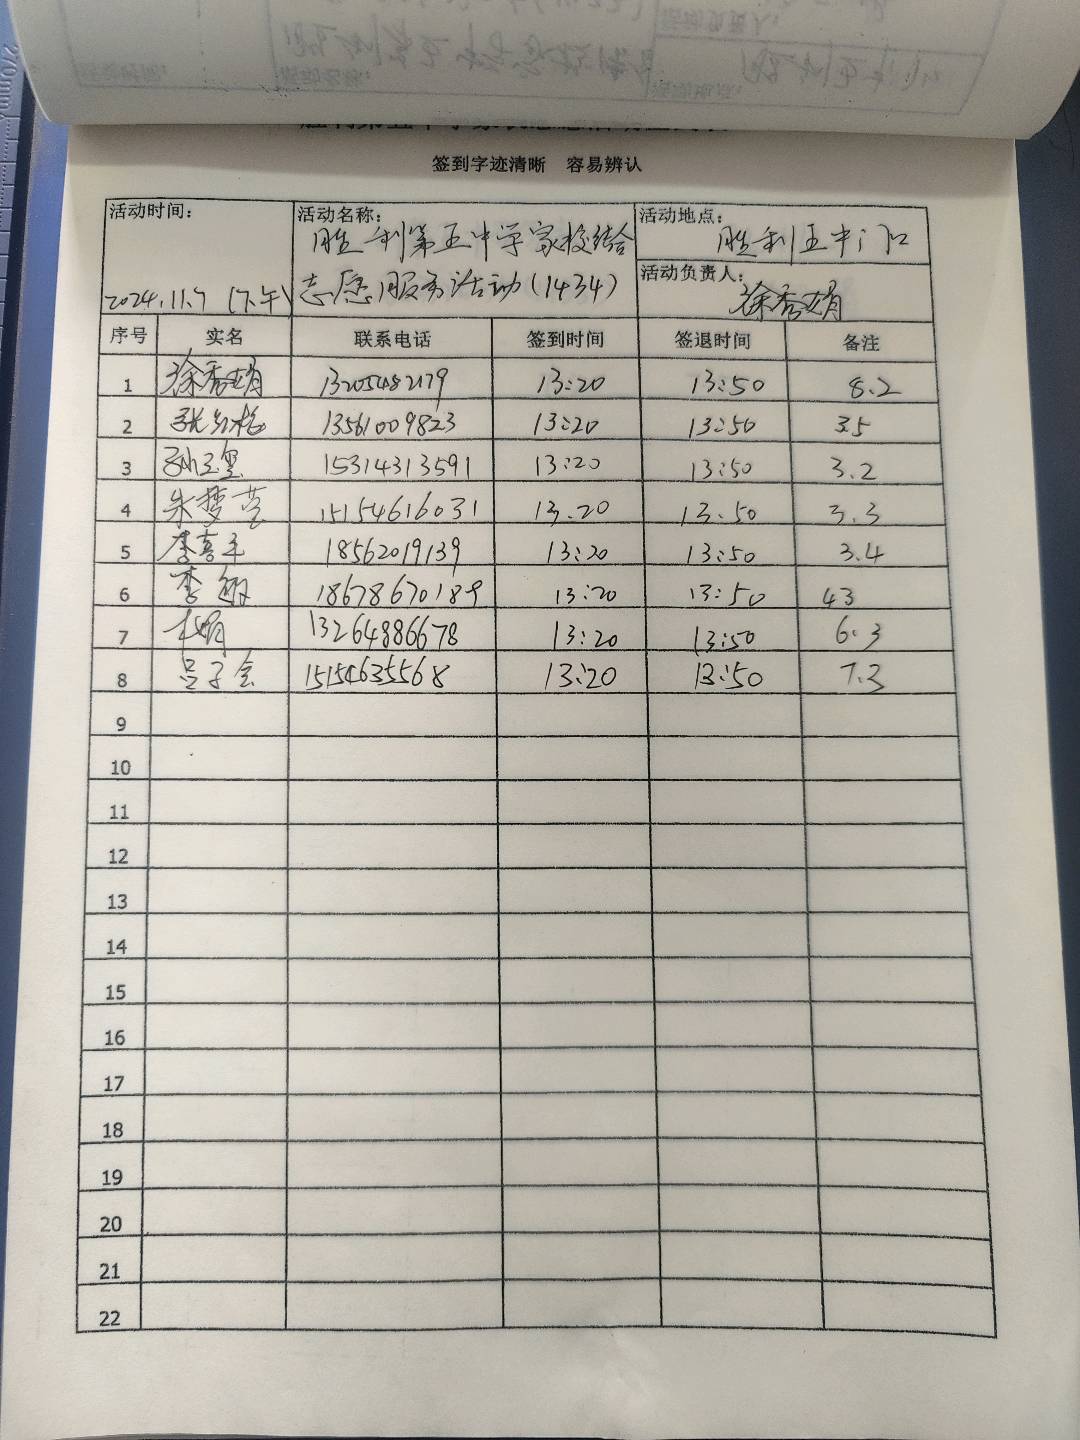 签到字迹清晰 容易辨认
活动时间: 活动名称: 活动地点:
胜利第五中学家校结合 胜利五中门口
活动负责人:
2024.11.7 (下午) 志愿服务活动(1434) 徐秀娟
序号 实名 联系电话 签到时间 签退时间 备注
1 徐秀娟 13205482179 13:20 13:50 8.2
2 13561009823 13:20 13:50 3.5
3 15314313591 13:20 13:50 3.2
4 朱梦莹 15154616031 13.20 13.50 3.3
5 18562019139 13:20 13:50 3.4
6 李敏 18678670189 13:20 13:50 43
7 杜娟 13264886678 13:20 13:50 6.3
8 吕子会 15154635568 13:20 13:50 7.3
9
10
11
12
13
14
15
16
17
18
19
20
21
22